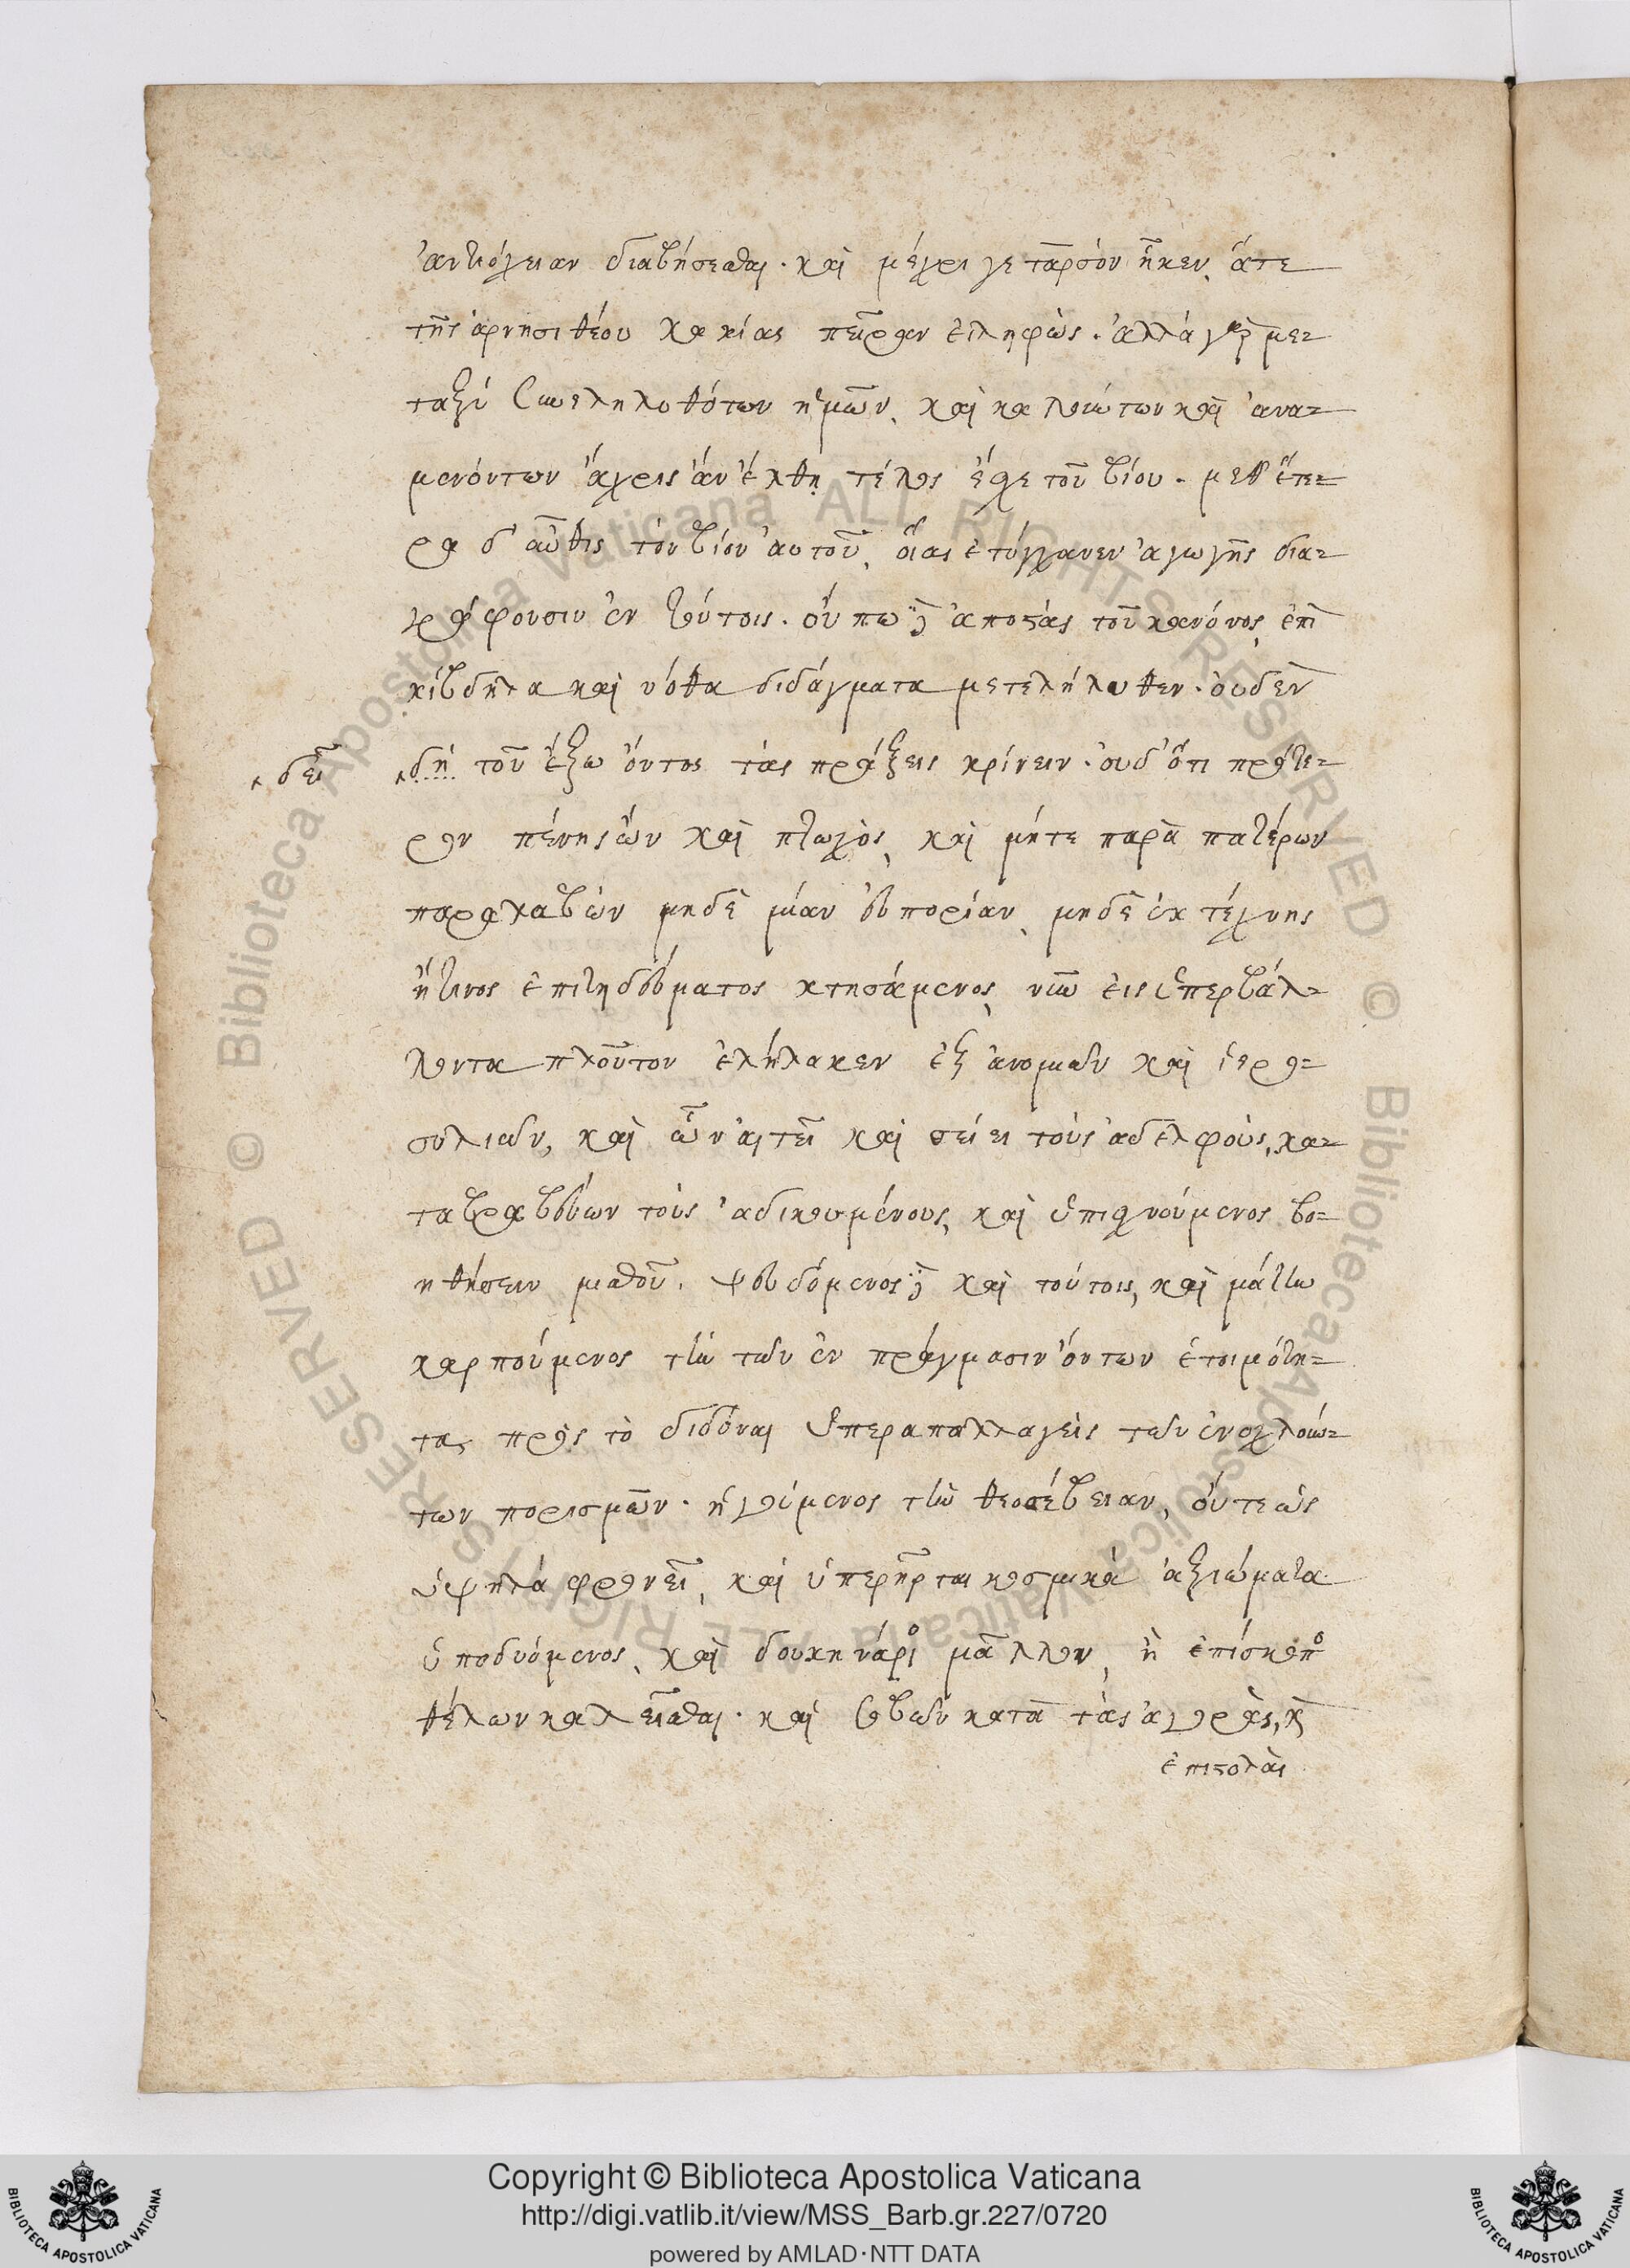 ἀντιόχειαν διαβήσεσθαι· καὶ μέχρι γε ταρσὸν ἧκεν, ἅτε
τῆς ἀρνησιθέου κακίας πεῖραν εἰληφώς. ἀλλὰ γὰρ με-
ταξὺ συνεληλυθότων ἡμῶν, καὶ καλούντων καὶ ἀνα-
μενόντων ἄχρις ἂν ἔλθῃ τέλος ἔσχε τοῦ βίου. μεθ' ἕτε-
ρα δ' αὖθις τὸν βίον αὐτοῦ, οἵας ἐτύγχανεν ἀγωγῆς δια-
γράφουσιν ἐν τούτοις. οὔπω δὲ ἀποστὰς τοῦ κανόνος, ἐπὶ
κίβδηλα καὶ νόθα διδάγματα μετελήλυθεν· οὐδὲν
δεῖ
δὴ τοῦ ἔξω ὄντος τὰς πράξεις κρίνειν· οὐδ' ὅτι πρότε-
ρον πένης ὢν καὶ πτωχὸς, καὶ μήτε παρὰ πατέρων
παραλαβὼν μηδὲ μίαν εὐπορίαν, μηδὲ ἐκ τέχνης
ἤ τινος ἐπιτηδεύματος κτησάμενος, νῦν εἰς ὑπερβάλ-
λοντα πλοῦτον ἐλήλακεν ἐξ ἀνομιῶν καὶ ἱερο-
συλιῶν, καὶ ὧν αἰτεῖ καὶ σείει τοὺς ἀδελφοὺς, κα-
ταβραβεύων τοὺς ἀδικουμένους, καὶ ὑπισχνούμενος βο-
ηθήσειν μισθοῦ. ψευδόμενος δὲ καὶ τούτοις, καὶ μάτην
καρπούμενος τὴν τῶν ἐν πράγμασιν ὄντων ἑτοιμότη-
τα, πρὸς τὸ διδόναι ὑπεραπαλλαγεὶς τῶν ἐνοχλούν-
των πορισμῶν. ἡγούμενος τὴν θεοσέβειαν, οὔτε ὡς
ὑψηλὰ φρονεῖ, καὶ ὑπερῆρται κοσμικὰ ἀξιώματα
ὑποδυόμενος, καὶ δουκηνάριος μᾶλλον, ἢ ἐπίσκοπος
θέλων καλεῖσθαι. καὶ σοβῶν κατὰ τὰς ἀγορὰς, καὶ
ἐπιστολὰς